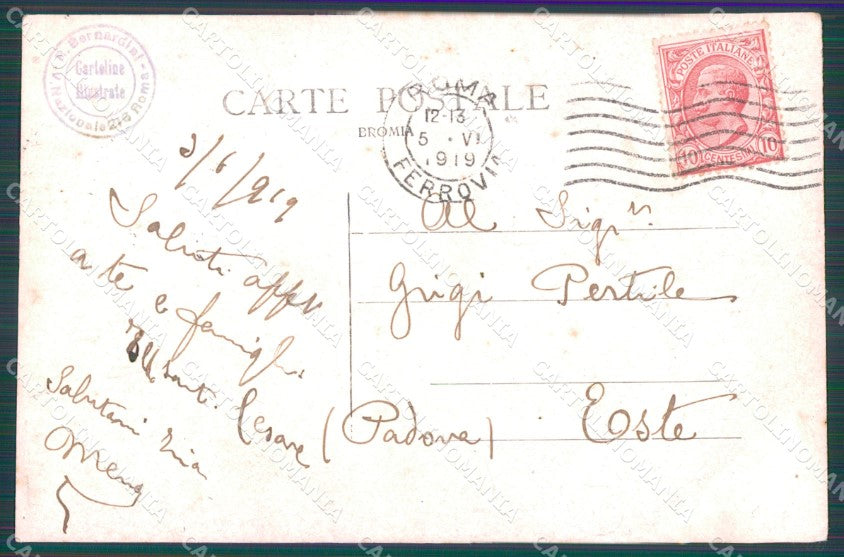 Bernardini
Cartoline
Illustrate
Nazionale Roma
CARTE POSTALE
BROMIA
ROMA
12-13
5 · VI
1919
FERROVIA
POSTE ITALIANE
10 CENTESIMI 10
5/6/919
Saluti aff.
a te e famiglia
Cesare
Salutami
Al Sigr.
Grigi Pertile
Este
(Padova)
CARTOLINOMANIA